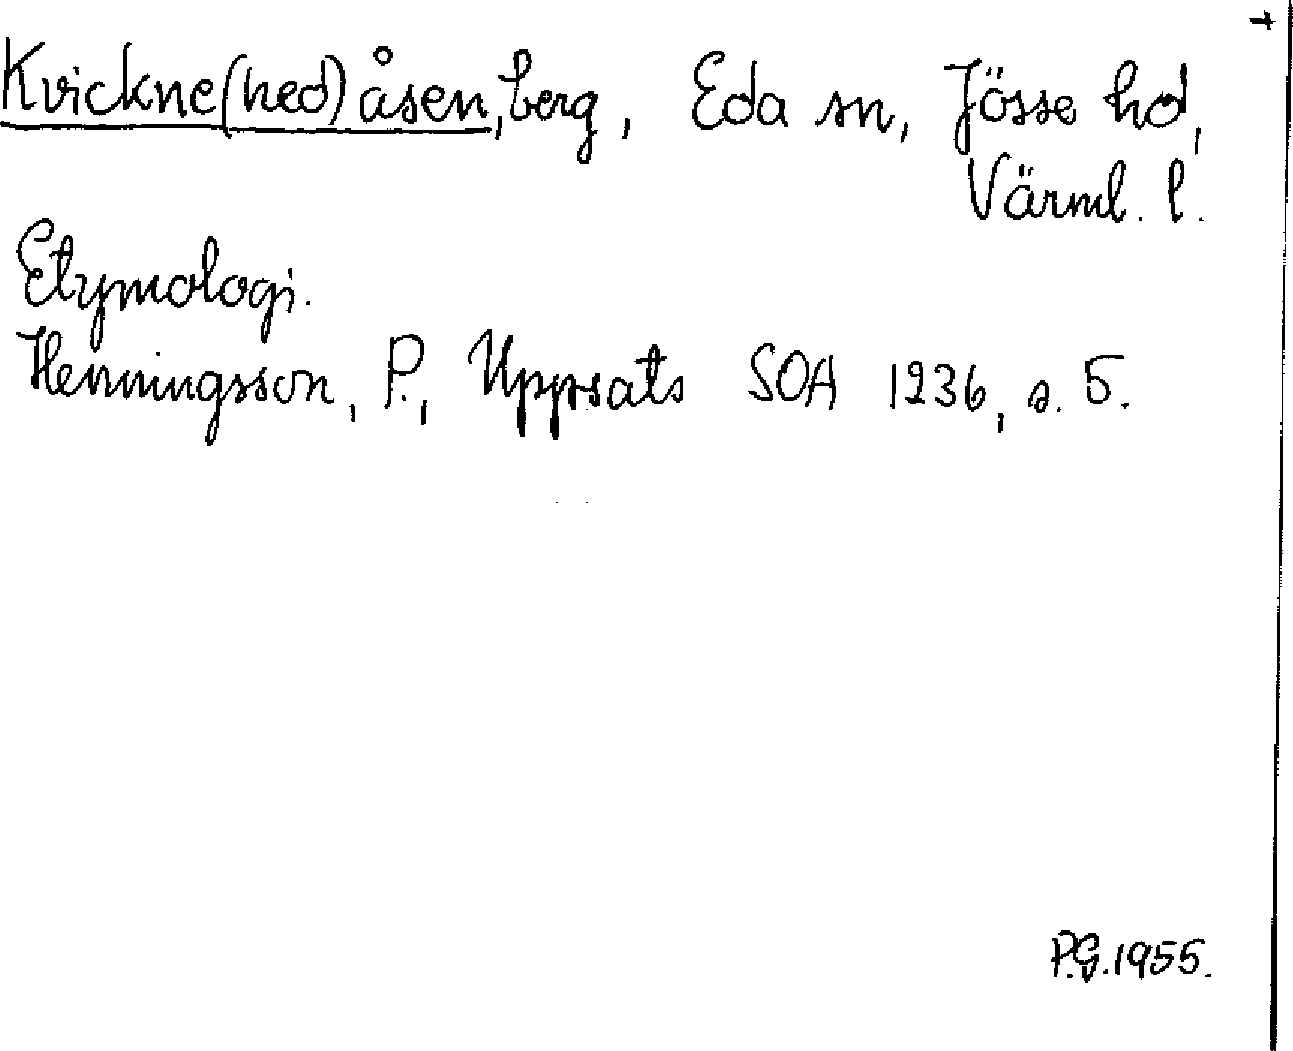 +
Kvickne(hed)åsen, berg, Eda sn, Jösse hd,
Värml. l.
Etymologi.
Henningsson, P., Uppsats SOA 1936, s. 5.
P.G. 1955.